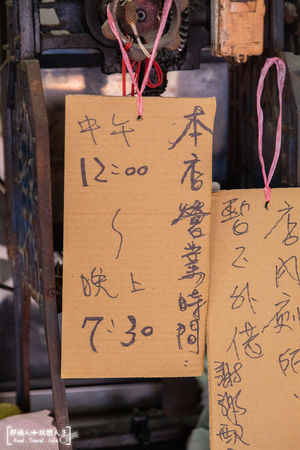 本店營業時間:
中午
12:00
~
晚上
7:30
店內廁所
暫不外借
謝謝
Food . Travel . Life